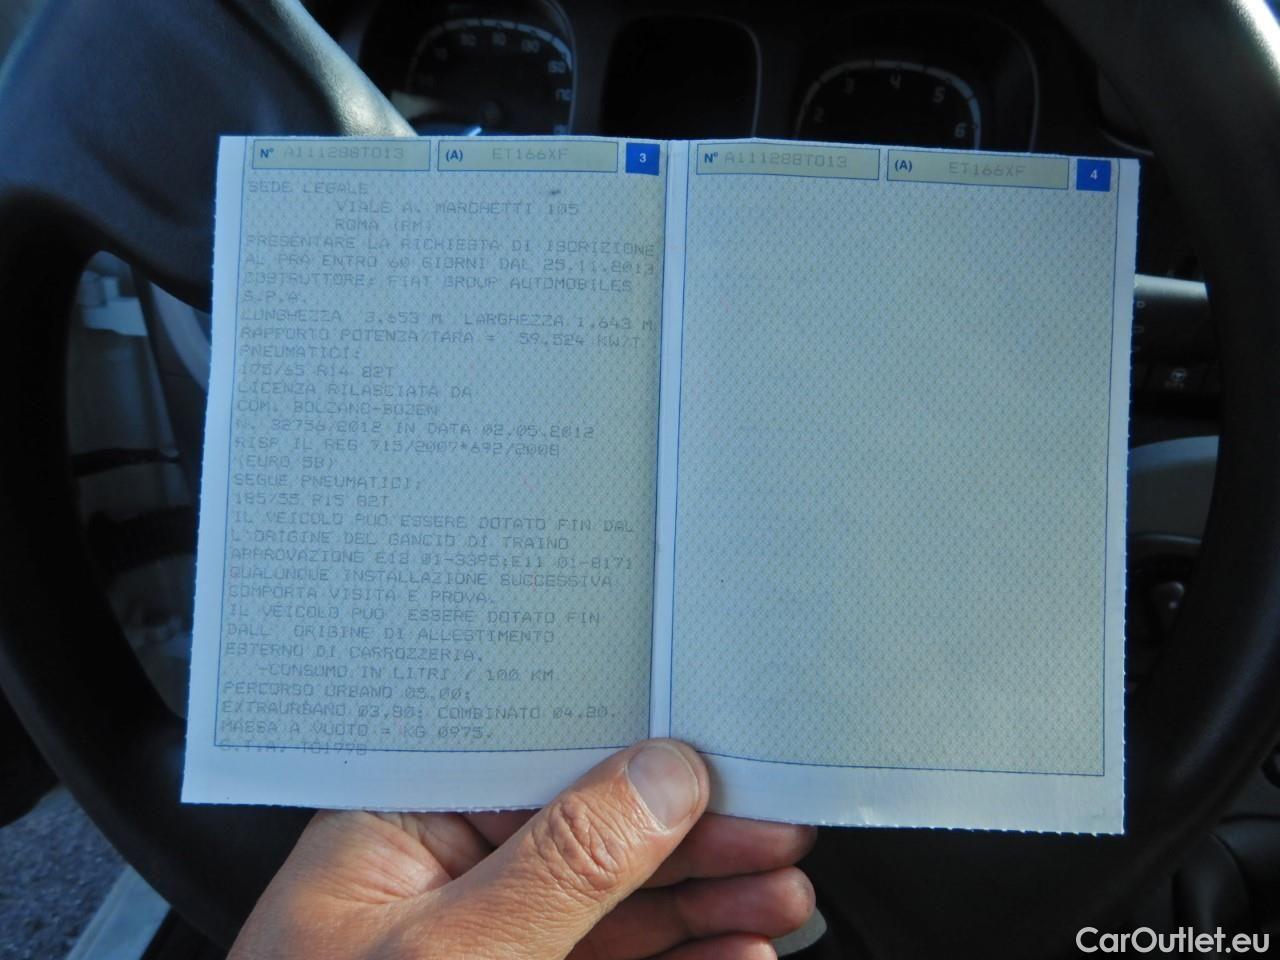 N° A111288T013 (A) ET166XF 3
SEDE LEGALE
VIALE A. MARCHETTI 105
ROMA (RM)
PRESENTARE LA RICHIESTA DI ISCRIZIONE
AL PRA ENTRO 60 GIORNI DAL 25.11.2013
COSTRUTTORE: FIAT GROUP AUTOMOBILES
S.P.A.
LUNGHEZZA 3,653 M LARGHEZZA 1,643 M
RAPPORTO POTENZA/TARA = 59,524 KW/T
PNEUMATICI:
175/65 R14 82T
LICENZA RILASCIATA DA
COM. BOLZANO-BOZEN
N. 32756/2012 IN DATA 02.05.2012
RISP IL REG 715/2007*692/2008
(EURO 5B)
SEGUE PNEUMATICI:
185/55 R15 82T
IL VEICOLO PUO ESSERE DOTATO FIN DAL
L'ORIGINE DEL GANCIO DI TRAINO
APPROVAZIONE E13 01-3395;E11 01-8171
QUALUNQUE INSTALLAZIONE SUCCESSIVA
COMPORTA VISITA E PROVA.
IL VEICOLO PUO' ESSERE DOTATO FIN
DALL' ORIGINE DI ALLESTIMENTO
ESTERNO DI CARROZZERIA.
-CONSUMO IN LITRI / 100 KM
PERCORSO URBANO 05,00;
EXTRAURBANO 03,80; COMBINATO 04,20.
MASSA A VUOTO = KG 0975.
N° A111288T013 (A) ET166XF 4
2 3 4 5 6
CarOutlet.eu